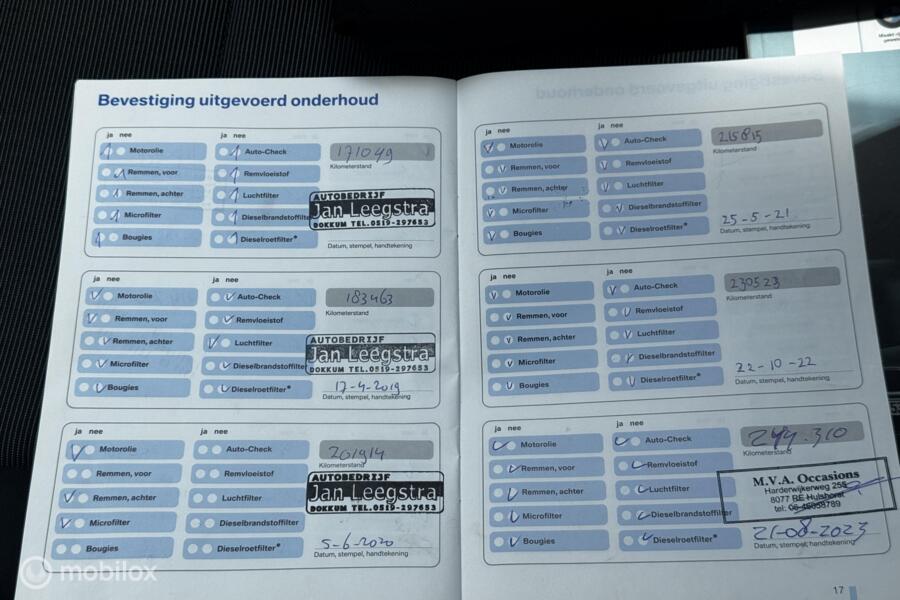 Bevestiging uitgevoerd onderhoud
ja nee ja nee
Motorolie Auto-Check 171049
Kilometerstand
Remmen, voor Remvloeistof
Remmen, achter Luchtfilter
AUTOBEDRIJF
Jan Leegstra
DOKKUM TEL.0519-297653
Microfilter Dieselbrandstoffilter
Bougies Dieselroetfilter*
Datum, stempel, handtekening
ja nee ja nee
Motorolie Auto-Check 183463
Kilometerstand
Remmen, voor Remvloeistof
Remmen, achter Luchtfilter
AUTOBEDRIJF
Jan Leegstra
DOKKUM TEL.0519-297653
Microfilter Dieselbrandstoffilter
Bougies Dieselroetfilter*
17-4-2019
Datum, stempel, handtekening
ja nee ja nee
Motorolie Auto-Check 201914
Kilometerstand
Remmen, voor Remvloeistof
Remmen, achter Luchtfilter
AUTOBEDRIJF
Jan Leegstra
DOKKUM TEL.0519-297653
Microfilter Dieselbrandstoffilter
Bougies Dieselroetfilter*
5-6-2020
Datum, stempel, handtekening
ja nee ja nee
Motorolie Auto-Check 215815
Kilometerstand
Remmen, voor Remvloeistof
Remmen, achter Luchtfilter
Microfilter Dieselbrandstoffilter
25-5-21
Bougies Dieselroetfilter*
Datum, stempel, handtekening
ja nee ja nee
Motorolie Auto-Check 230523
Kilometerstand
Remmen, voor Remvloeistof
Remmen, achter Luchtfilter
Microfilter Dieselbrandstoffilter
22-10-22
Bougies Dieselroetfilter*
Datum, stempel, handtekening
ja nee ja nee
Motorolie Auto-Check 244.310
Kilometerstand
Remmen, voor Remvloeistof
Remmen, achter Luchtfilter
M.V.A. Occasions
Harderwijkerweg 255
8077 RE Hulshorst
tel:
Microfilter Dieselbrandstoffilter
21-08-2023
Bougies Dieselroetfilter*
Datum, stempel, handtekening
17
mobilox